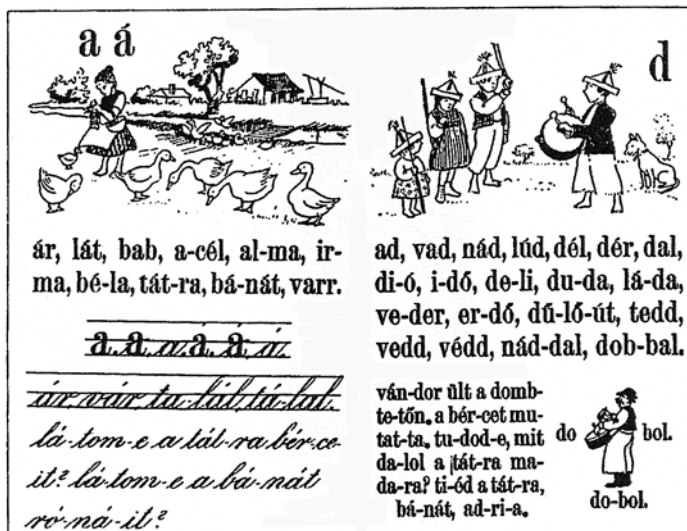 a á
ár, lát, bab, a-cél, al-ma, ir-
ma, bé-la, tát-ra, bá-nát, varr.
a a a á á á
ár vár ta-lál, tá-lal.
lá-tom-e a tát-ra bér-ce-
it? lá-tom-e a bá-nát
ró-ná-it?
d
ad, vad, nád, lúd, dél, dér, dal,
di-ó, i-dő, de-li, du-da, lá-da,
ve-der, er-dő, dű-lő-út, tedd,
vedd, védd, nád-dal, dob-bal.
ván-dor ült a domb-
te-tőn. a bér-cet mu-
tat-ta. tu-dod-e, mit
da-lol a tát-ra ma-
da-ra? ti-éd a tát-ra,
bá-nát, ad-ri-a.
do bol.
do-bol.